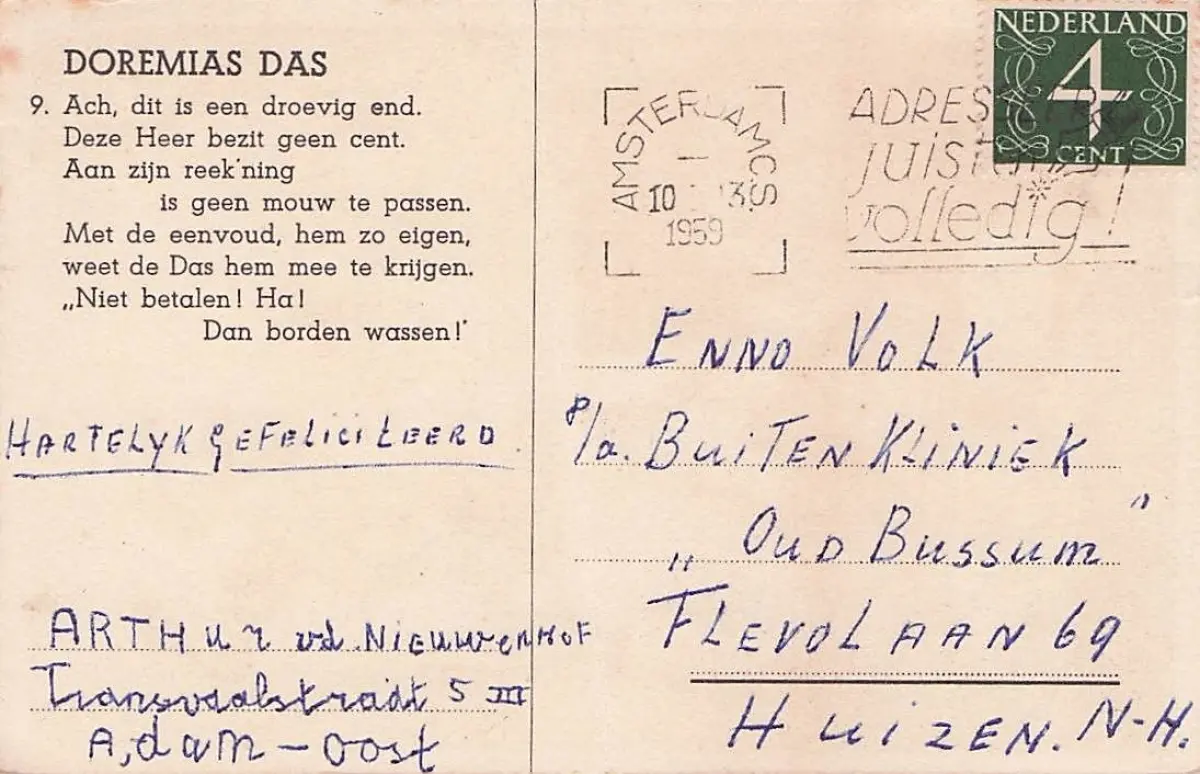 DOREMIAS DAS
9. Ach, dit is een droevig end.
Deze Heer bezit geen cent.
Aan zijn reek'ning
is geen mouw te passen.
Met de eenvoud, hem zo eigen,
weet de Das hem mee te krijgen.
„Niet betalen! Ha!
Dan borden wassen!"
HARTELYK GEFELICITEERD
ARTHUR vd. NIEUWENHOF
Transvaalstraat 5 III
A,dam - Oost
NEDERLAND
4
CENT
AMSTERDAM C.S.
10
1959
ADRESSEER
juist en
volledig!
ENNO VOLK
P/a. BUITEN KLINIEK
„ OUD BUSSUM "
FLEVOLAAN 69
HUIZEN. N-H.